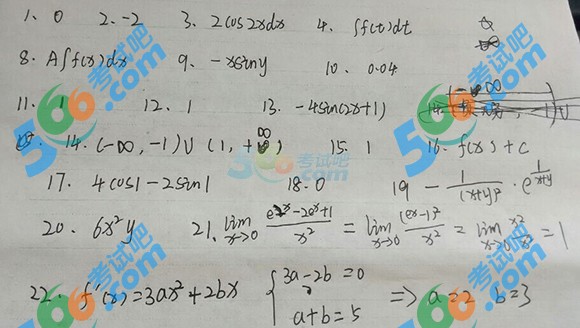 1. 0 2. -2 3. 2cos2xdx 4. ∫f(t)dt
8. A∫f(x)dx 9. -xsiny 10. 0.04
11. 1 12. 1 13. -4sin(2x+1)
14. (-∞, -1)∪(1, +∞) 15. 1 16. f(x)+c
17. 4cos1-2sin1 18. 0 19 - 1/(x+y)² · e^(1/(x+y))
20. 6x²y 21. lim x→0 (e^2x-2e^x+1)/x² = lim x→0 (e^x-1)²/x² = lim x→0 x²/x² = 1
22. f'(x)=3ax²+2bx { 3a-2b=0 a+b=5 ⇒ a=2 b=3
566 考试吧 .com
566 考试吧 .com
566 考试吧 .com
566 考试吧 .com